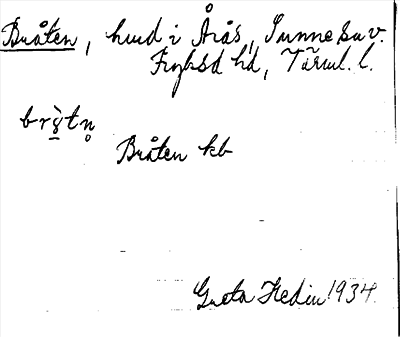 Bråten, hmd i Årås, Sunne sn v.
Fryksd hd, Värml. l.
brọ̀tn̥
Bråten kb
Greta Hedin 1934.